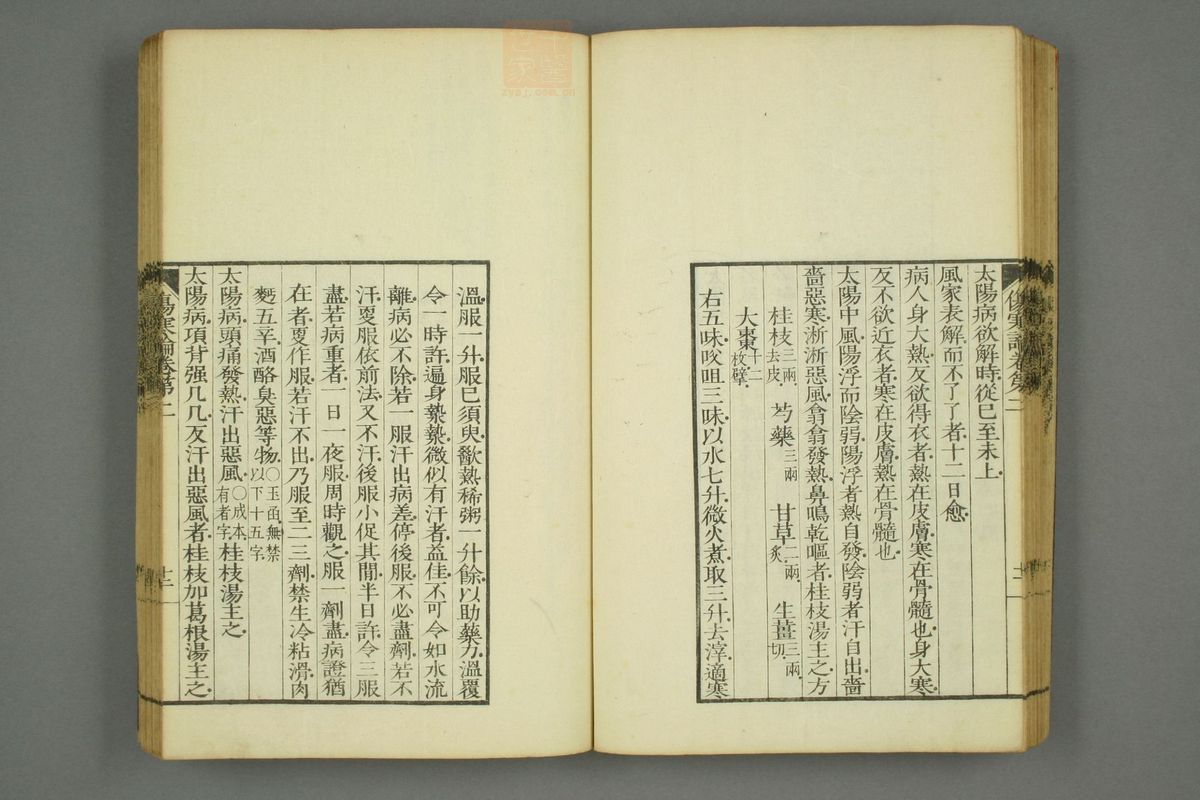 太陽病欲解時從巳至未上
風家表解而不了了者十二日愈
病人身大熱反欲得衣者熱在皮膚寒在骨髓也身大寒
反不欲近衣者寒在皮膚熱在骨髓也
太陽中風陽浮而陰弱陽浮者熱自發陰弱者汗自出嗇
嗇惡寒淅淅惡風翕翕發熱鼻鳴乾嘔者桂枝湯主之方
桂枝三兩去皮 芍藥三兩 甘草二兩炙 生薑三兩切
大棗十二枚擘
右五味㕮咀三味以水七升微火煮取三升去滓適寒
溫服一升服已須臾歠熱稀粥一升餘以助藥力溫覆
令一時許遍身漐漐微似有汗者益佳不可令如水流
離病必不除若一服汗出病差停後服不必盡劑若不
汗更服依前法又不汗後服小促其間半日許令三服
盡若病重者一日一夜服周時觀之服一劑盡病證猶
在者更作服若汗不出乃服至二三劑禁生冷粘滑肉
麪五辛酒酪臭惡等物○玉函無禁以下十五字
太陽病頭痛發熱汗出惡風○成本有者字桂枝湯主之
太陽病項背强几几反汗出惡風者桂枝加葛根湯主之